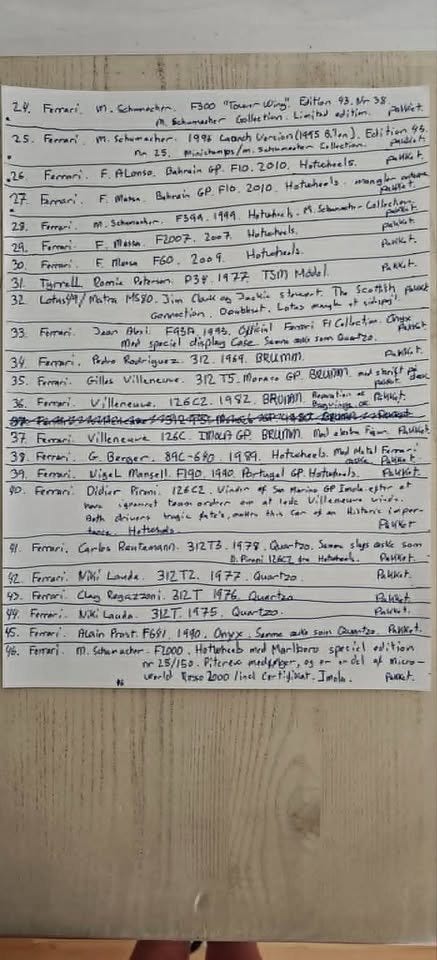 24. Ferrari. M. Schumacher. F300 "Tower Wing". Edition 43. Nr 38.
M. Schumacher Collection. Limited edition. Pakket.
25. Ferrari. M. Schumacher. 1996 Launch Version (1995 Edition
nr 25. Minichamps/M. Schumacher Collection. Pakket
26. Ferrari. F. Alonso. Bahrain GP. F10. 2010. Hotwheels. Pakket.
27. Ferrari. F. Massa. Bahrain GP. F10. 2010. Hotwheels. mangler Pakket.
28. Ferrari. M. Schumacher. F399. 1999. Hotwheels. M. Schumacher Collection. Pakket.
29. Ferrari. F. Massa. F2007. 2007. Hotwheels. Pakket.
30. Ferrari. F. Massa F60. 2009. Hotwheels. Pakket.
31. Tyrrell Ronnie Peterson. P34. 1977. TSM Model. Pakket.
32. Lotus49/Matra MS80. Jim Clark og Jackie Stewart. The Scottish Pakket
connection. Lotus mangler et
33. Ferrari. Jean Alesi. F93A. 1993. Official Ferrari F1 Collection. Onyx
Med special display Case. Samme som Quartzo. Pakket.
34. Ferrari. Pedro Rodriguez. 312. 1969. BRUMM. Pakket.
35. Ferrari. Gilles Villeneuve. 312 T5. Monaco GP. BRUMM. med skrift på
36. Ferrari. Villeneuve. 126C2. 1982. BRUMM. Pakket.
37. Ferrari. Villeneuve 126C. IMOLA GP. BRUMM. Med ekstra Figur. Pakket
38. Ferrari. G. Berger. 89C-640. 1989. Hotwheels. Med Metal Ferrari Pakket.
39. Ferrari. Nigel Mansell. F190. 1990. Portugal GP. Hotwheels. Pakket.
40. Ferrari. Didier Pironi. 126C2. Vinder of San Marino GP Imola efter at
have ignoreret team order om at lade Villeneuve vinde.
Both drivers tragic fate's, makes this car of an Historic impor-
tance. Hotwheels. Pakket.
41. Ferrari. Carlos Reutemann. 312T3. 1978. Quartzo. Samme slags æske som
D. Pironi 126C2 fra Hotwheels. Pakket.
42. Ferrari. Niki Lauda. 312T2. 1977. Quartzo. Pakket.
43. Ferrari. Clay Regazzoni. 312T 1976. Quartzo Pakket.
44. Ferrari. Niki Lauda. 312T. 1975. Quartzo. Pakket.
45. Ferrari. Alain Prost. F641. 1990. Onyx. Samme æske som Quartzo. Pakket.
46. Ferrari. M. Schumacher. F2000. Hotwheels med Marlboro special edition
nr 25/150. Pitcrew medfølger, og er en del af micro-
world 2000/incl Certifikat. Imola. Pakket.